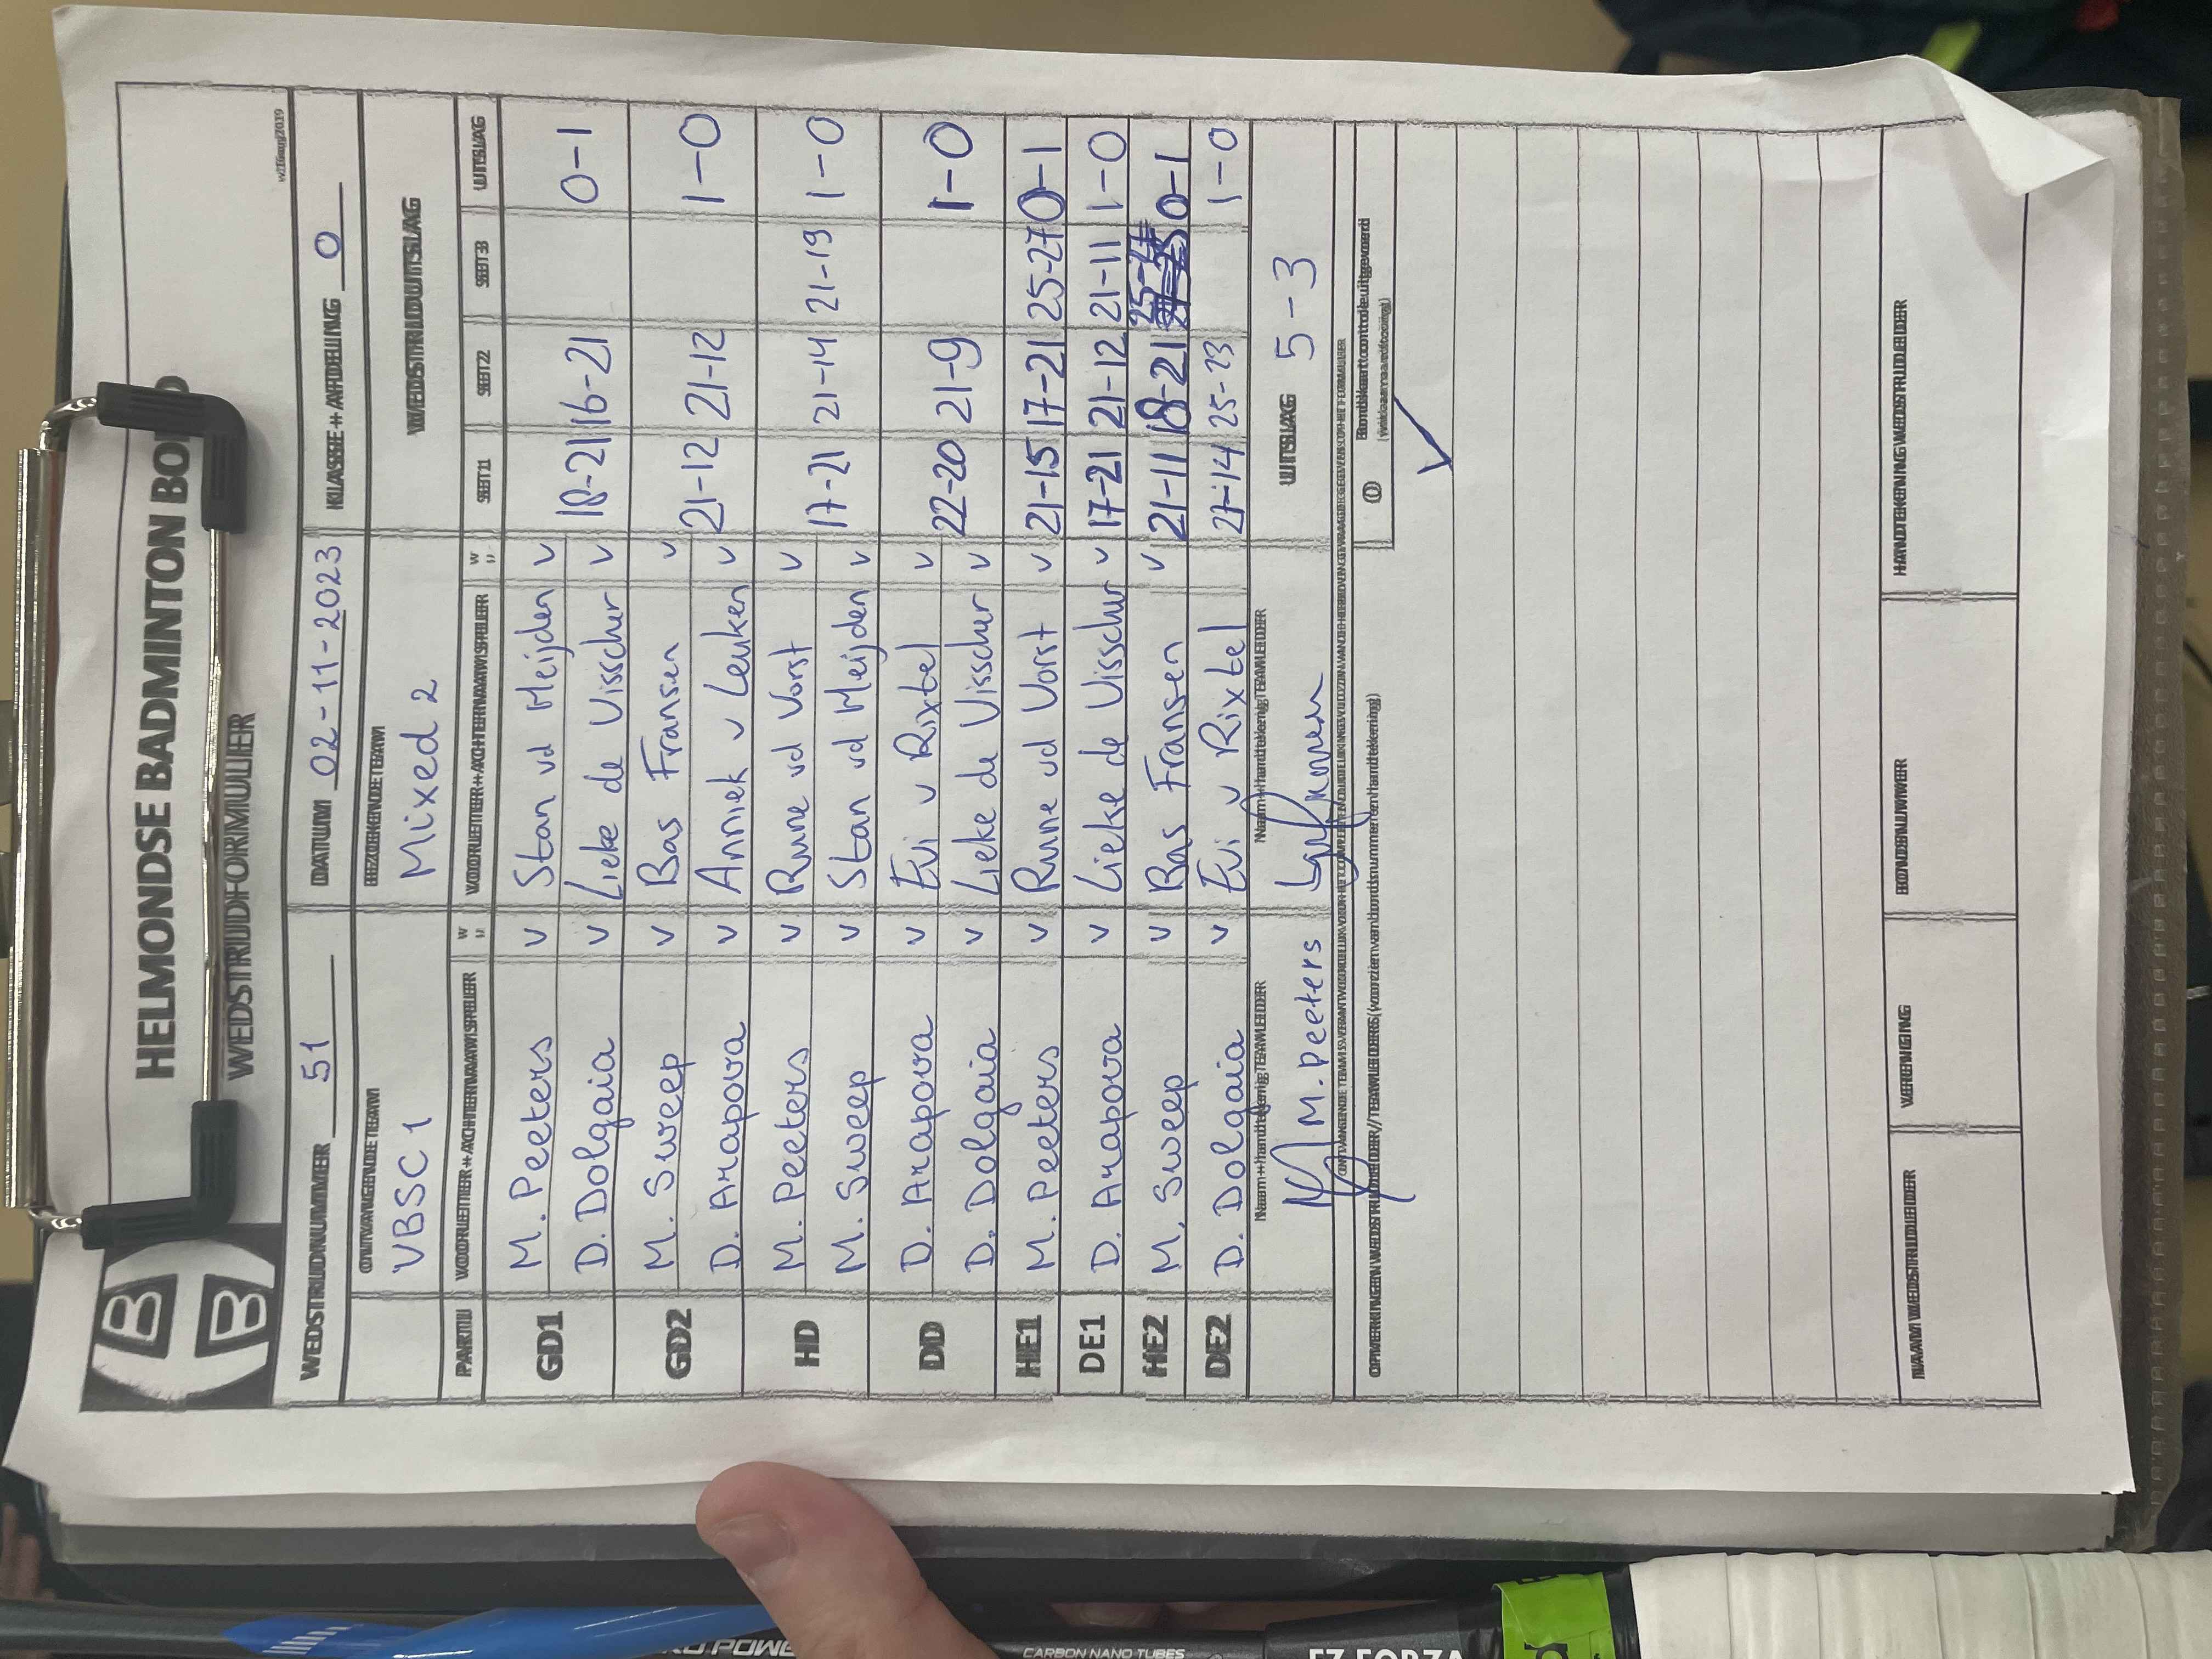 HELMONDSE BADMINTON BO
WEDSTRIJDFORMULIER
wzl6aug2019
WEDSTRIJDNUMMER 51 DATUM 02-11-2023 KLASSE + AFDELING 0
ONTVANGENDE TEAM BEZOEKENDE TEAM WEDSTRIJDUITSLAG
VBSC 1 Mixed 2
PARTIJ VOORLETTER + ACHTERNAAM SPELER VOORLETTER + ACHTERNAAM SPELER SET 1 SET 2 SET 3 UITSLAG
GD1 M. Peeters v Stan vd Meijden v
D. Dolgaia v Lieke de Visscher v 18-21 16-21 0-1
GD2 M. Sweep v Bas Fransen v
D. Arapova v Anniek v Leuken v 21-12 21-12 1-0
HD M. Peeters v Rune vd Vorst v
M. Sweep v Stan vd Meijden v 17-21 21-14 21-19 1-0
DD D. Arapova v Evi v Rixtel v
D. Dolgaia v Lieke de Visscher v 22-20 21-9 1-0
HE1 M. Peeters v Rune vd Vorst v 21-15 17-21 25-27 0-1
DE1 D. Arapova v Lieke de Visscher v 17-21 21-12 21-11 1-0
HE2 M. Sweep v Bas Fransen v 21-11 18-21 0-1
DE2 D. Dolgaia v Evi v Rixtel 21-14 25-23 1-0
Naam + handtekening TEAMLEIDER Naam + handtekening TEAMLEIDER UITSLAG 5-3
M. Peeters
ONTVANGENDE TEAM IS VERANTWOORDELIJK VOOR HET COMPLEET EN DUIDELIJK INGEVULD ZIJN VAN DE HIERBOVEN GEVRAAGDE GEGEVENS OP HET FORMULIER
OPMERKINGEN WEDSTRIJDLEIDER / TEAMLEIDERS (voorzien van bondsnummer en handtekening)
Bondskaartcontrole uitgevoerd
NAAM WEDSTRIJDLEIDER VERENIGING BONDSNUMMER HANDTEKENING WEDSTRIJDLEIDER
CARBON NANO TUBES
FZ FORZA